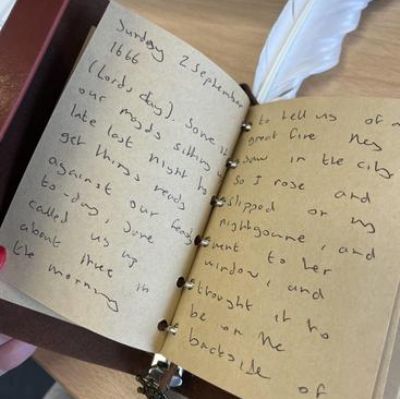 Sunday 2 September
1666
(Lords day). Some of
our mayds sitting up
late last night to
get things ready
against our feast
to-day, Jane
called us up
about three in
the morning
to tell us of a
great fire they
saw in the city
So I rose and
slipped on my
nightgowne, and
went to her
window, and
thought it to
be on the
backside of